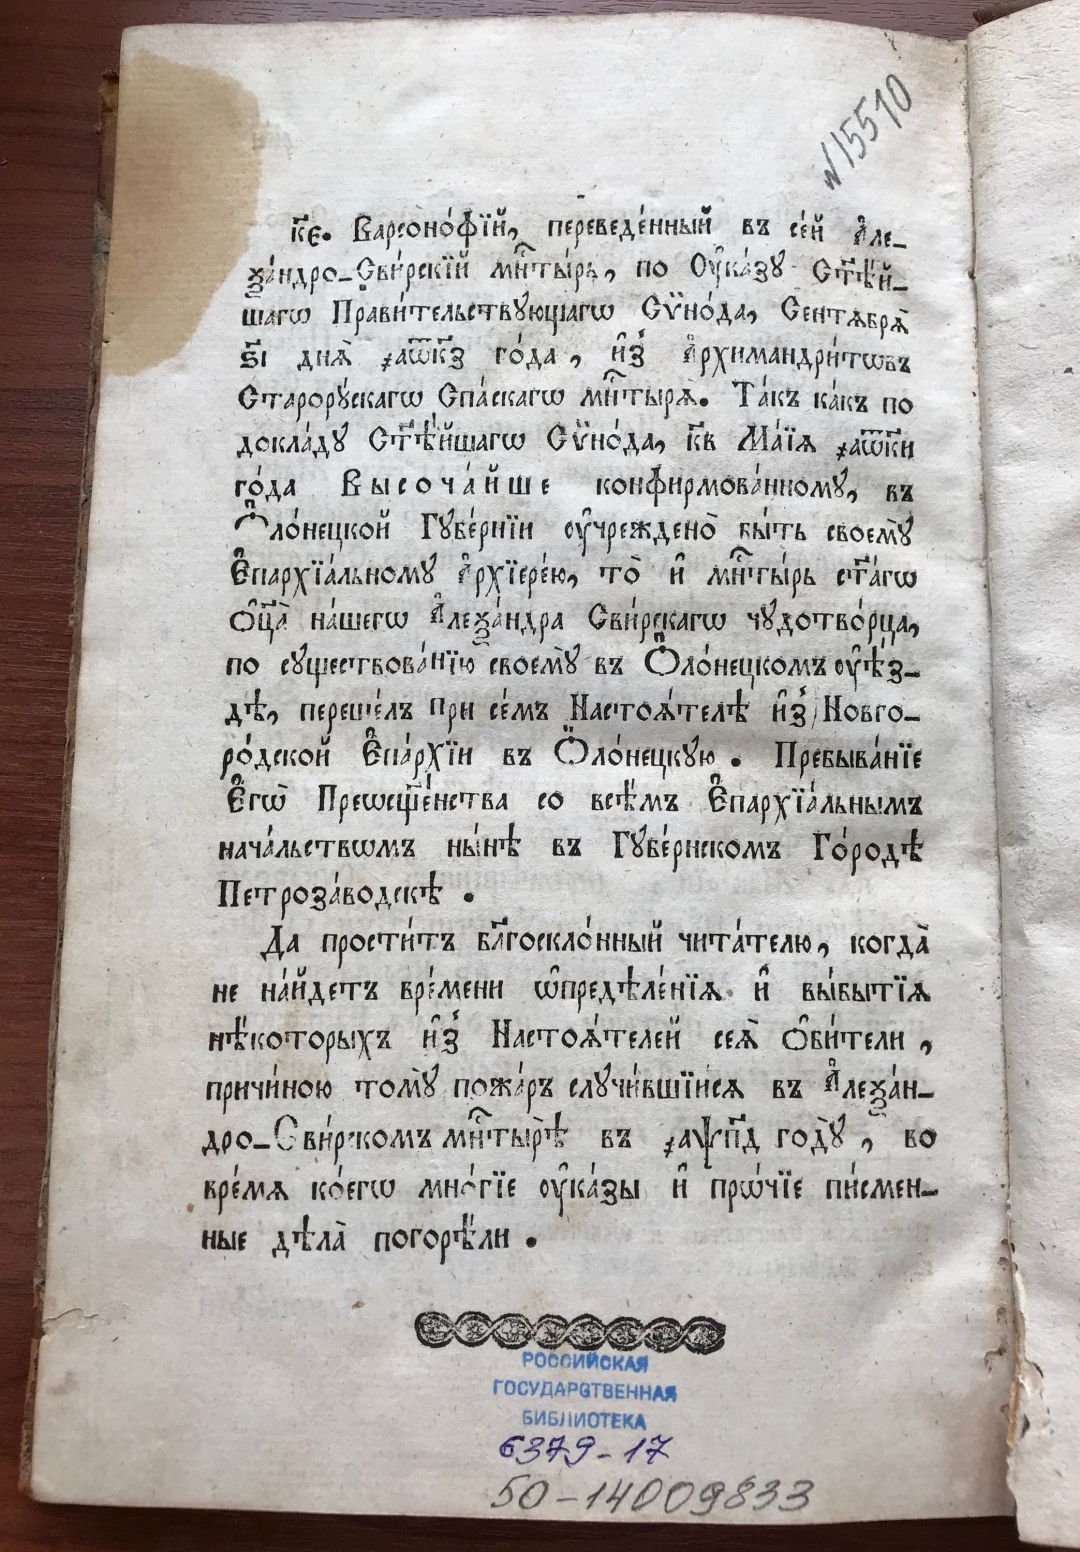 №15510
к҃є. Варсоно́фїй, переведе́нный въ се́й А҆ле-
ѯа́ндро-Сви́рскїй мн҃ты́рь, по Оу҆ка́зу Ст҃ѣ́й-
шагѡ Прави́тельствующагѡ Сѵно́да, Сентѧбрѧ̀
в҃і днѧ̀ ҂аѿк҃з го́да, и҆з̾ А҆рхимандри́тѡвъ
Старору́скагѡ Спа́скагѡ мн҃тырѧ̀. Та́къ ка́къ по
докла́ду Ст҃ѣ́йшагѡ Сѵно́да, к҃в Ма́їѧ ҂аѿк҃и
го́да Высоча́йше конфирмова́нному, въ
Ѻ҆ло́нецкой Губе́рнїи оу҆чреждено̀ бы́ть своемꙋ̀
Е҆пархїа́льному А҆рхїере́ю, то̀ и҆ мн҃ты́рь ст҃а́гѡ
Ѻ҆ц҃а̀ на́шегѡ А҆леѯа́ндра Сви́рскагѡ чудотво́рца,
по существова́нїю своемꙋ̀ въ Ѻ҆ло́нецкомъ оу҆ѣ́з-
дѣ, переше́лъ при се́мъ Настоѧ́телѣ и҆з̾ Новго-
ро́дской Е҆па́рхїи въ Ѻ҆ло́нецкую. Пребыва́нїе
Е҆гѡ̀ Преѡсщ҃е́нства со всѣ́мъ Е҆пархїа́льнымъ
нача́льствѡмъ ны́нѣ въ Губе́рнскомъ Го́родѣ
Петроза́водскѣ.
Да прости́тъ бл҃госкло́нный чита́телю, когда̀
не на́йдетъ вре́мени ѡ҆предѣле́нїѧ и҆ вы́бытїѧ
нѣ́которыхъ и҆з̾ Настоѧ́телей сеѧ̀ Ѻ҆би́тели,
причи́ною тому̀ пожа́ръ случи́вшїисѧ въ А҆леѯа́н-
дро-Сви́рскомъ мн҃тырѣ̀ въ ҂аѱп҃д году̀, во
вре́мѧ ко́егѡ мно́гїе оу҆ка́зы и҆ прѡ́чїе пи́смен-
ные дѣла̀ погорѣ́ли.
РОССИЙСКАЯ
ГОСУДАРСТВЕННАЯ
БИБЛИОТЕКА
6379-17
50-14009833